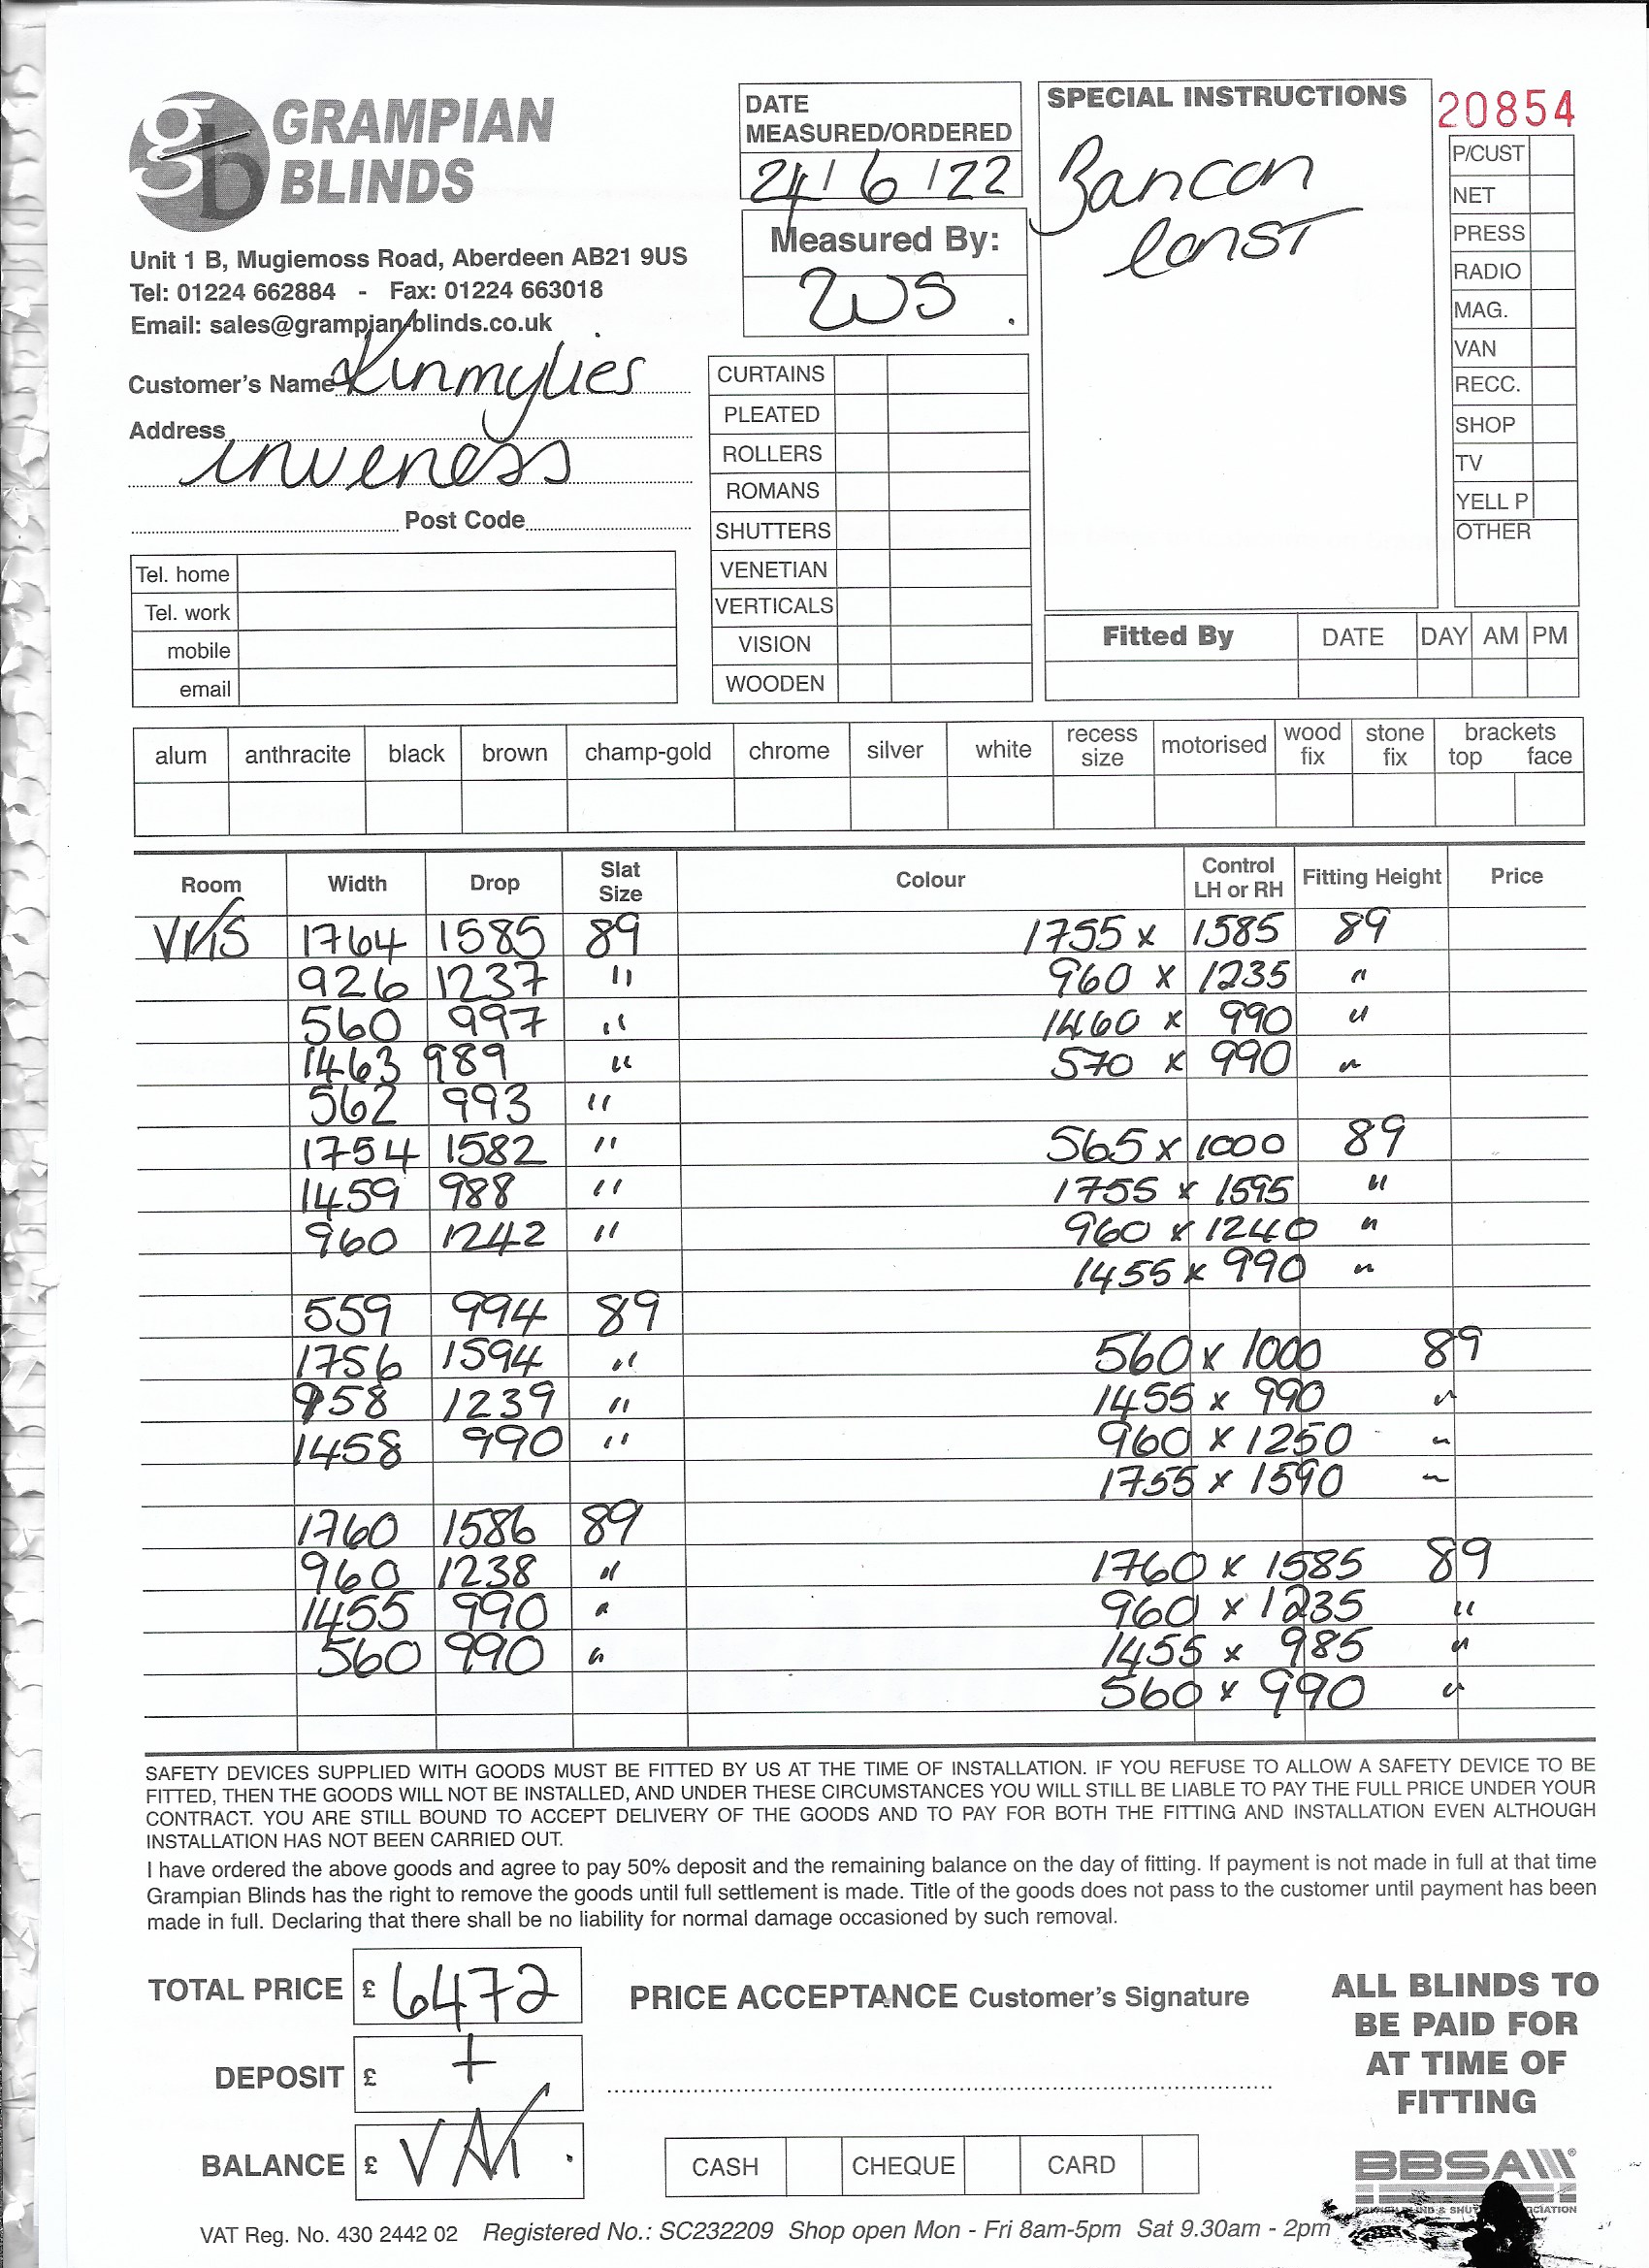 GRAMPIAN BLINDS
DATE MEASURED/ORDERED
24/6/22
Measured By:
SPECIAL INSTRUCTIONS
Bancon
Const
20854
P/CUST
NET
PRESS
RADIO
MAG.
VAN
RECC.
SHOP
TV
YELL P
OTHER
Unit 1 B, Mugiemoss Road, Aberdeen AB21 9US
Tel: 01224 662884 - Fax: 01224 663018
Email: sales@grampian-blinds.co.uk
Customer's Name Kinmylies
Address
inveness
Post Code
Tel. home
Tel. work
mobile
email
CURTAINS
PLEATED
ROLLERS
ROMANS
SHUTTERS
VENETIAN
VERTICALS
VISION
WOODEN
Fitted By DATE DAY AM PM
alum anthracite black brown champ-gold chrome silver white recess size motorised wood fix stone fix brackets top face
Room Width Drop Slat Size Colour Control LH or RH Fitting Height Price
1764 1585 89 1755 x 1585 89
926 1237 " 960 x 1235 "
560 997 " 1460 x 990 "
1463 989 " 570 x 990 "
562 993 "
1754 1582 " 565 x 1000 89
1459 988 " 1755 x 1595 "
960 1242 " 960 x 1240 "
1455 x 990 "
559 994 89
1756 1594 " 560 x 1000 89
958 1239 " 1455 x 990 "
1458 990 " 960 x 1250 "
1755 x 1590 "
1760 1586 89
960 1238 " 1760 x 1585 89
1455 990 " 960 x 1235 "
560 990 " 1455 x 985 "
560 x 990 "
SAFETY DEVICES SUPPLIED WITH GOODS MUST BE FITTED BY US AT THE TIME OF INSTALLATION. IF YOU REFUSE TO ALLOW A SAFETY DEVICE TO BE
FITTED, THEN THE GOODS WILL NOT BE INSTALLED, AND UNDER THESE CIRCUMSTANCES YOU WILL STILL BE LIABLE TO PAY THE FULL PRICE UNDER YOUR
CONTRACT. YOU ARE STILL BOUND TO ACCEPT DELIVERY OF THE GOODS AND TO PAY FOR BOTH THE FITTING AND INSTALLATION EVEN ALTHOUGH
INSTALLATION HAS NOT BEEN CARRIED OUT.
I have ordered the above goods and agree to pay 50% deposit and the remaining balance on the day of fitting. If payment is not made in full at that time
Grampian Blinds has the right to remove the goods until full settlement is made. Title of the goods does not pass to the customer until payment has been
made in full. Declaring that there shall be no liability for normal damage occasioned by such removal.
TOTAL PRICE £ 6472
DEPOSIT £ +
BALANCE £ VAT.
PRICE ACCEPTANCE Customer's Signature
CASH CHEQUE CARD
ALL BLINDS TO
BE PAID FOR
AT TIME OF
FITTING
BBSA
VAT Reg. No. 430 2442 02 Registered No.: SC232209 Shop open Mon - Fri 8am-5pm Sat 9.30am - 2pm